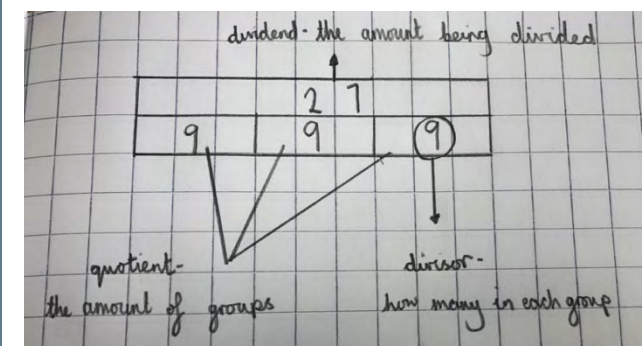 dividend - the amount being divided
27
9 9 9
quotient -
the amount of groups
divisor -
how many in each group